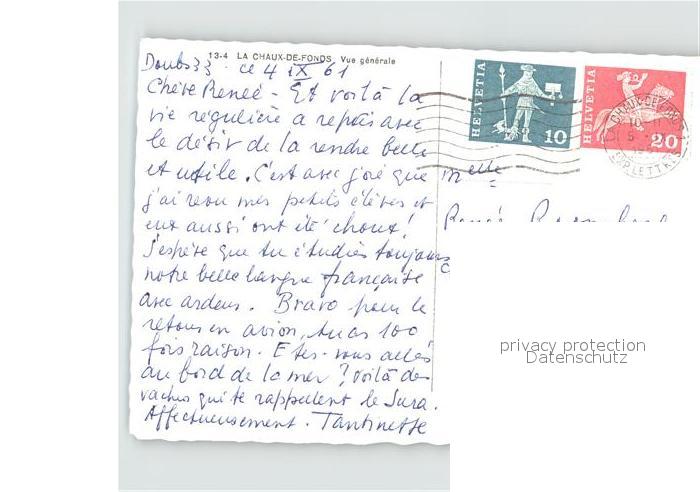 13-4 LA CHAUX-DE-FONDS Vue générale
Doubs 33 - ce 4 IX 61
Chère Renée - Et voilà la
vie régulière a repris avec
le désir de la rendre belle
et utile. C'est avec joie que
j'ai revu mes petits élèves et
eux aussi ont été "choux"!
J'espère que tu étudies toujours
notre belle langue française
avec ardeur. Bravo pour le
retour en avion, tu as 100
fois raison. Etes-vous allés
au bord de la mer? Voilà des
vaches qui te rappellent le Jura.
Affectueusement. Tantinette
HELVETIA
10
HELVETIA
20
Melle
Renée
privacy protection
Datenschutz